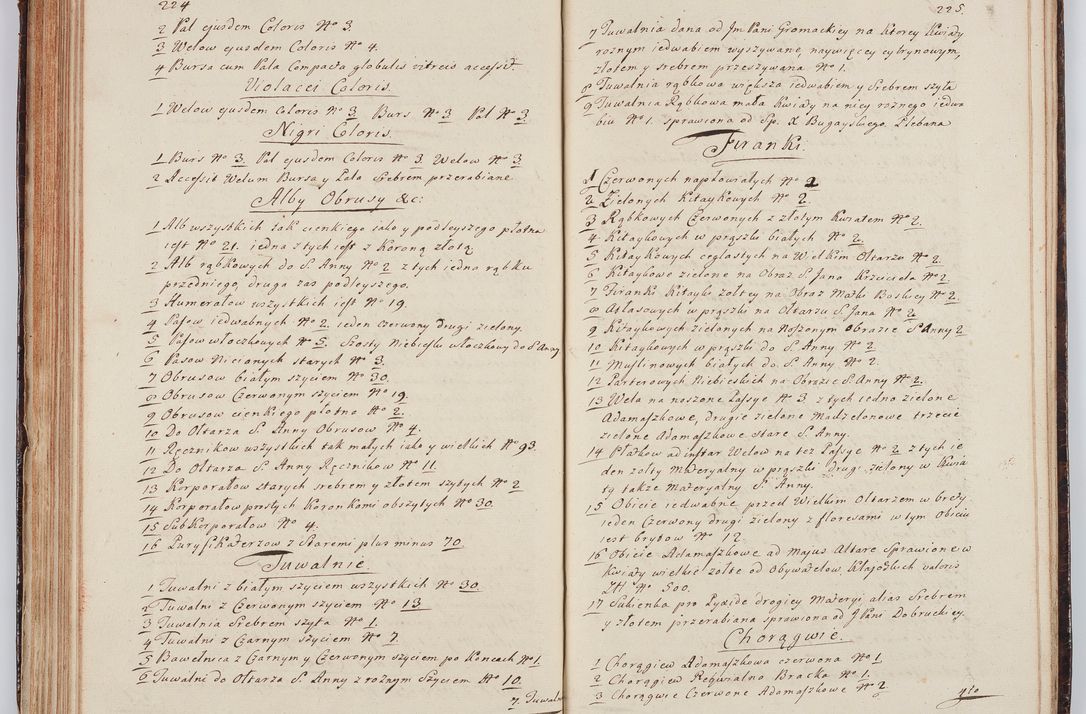 224
2 Pal ejusdem Coloris No 3.
3 Welow ejusdem Coloris No 4.
4 Bursa cum Pala Compacta globulis citreis accessit.
Violacei Coloris.
1 Welow ejusdem Coloris No 3 Burs No 3 Pal No 3
Nigri Coloris.
1 Burs No 3. Pal ejusdem Coloris No 3. Welow No 3
2 Accessit Welum Bursa y Pala srebrem przerabiane
Alby Obrusy &c:
1 Alb wszystkich tak cienkiego iako y podleyszego płotna
iest No 21. iedna z tych iest z Koroną złotą
2 Alb rąbkowych do S. Anny No 2 z tych iedna rąbku
przedniego, druga zas podleyszego.
3 Humerałow wszystkich iest No 19
4 Pasow iedwabnych No 2. ieden czerwony drugi zielony.
5 Pasow włoczkowych No 5. Szosty Niebieski włoczkowy do S. Anny
6 Pasow Nicianych starych No 3.
7 Obrusow białym szyciem No 30.
8 Obrusow Czerwonym szyciem No 19.
9 Obrusow cienkiego płotna No 2.
10 Do Ołtarza S. Anny Obrusow No 4.
11 Ręcznikow wszystkich tak małych iako y wielkich No 93.
12 Do Ołtarza S. Anny Ręcznikow No 11.
13 Korporałow starych srebrem y złotem szytych No 2
14 Korporałow prostych Koronkami obszytych No 30.
15 SubKorporałow No 4.
16 Puryfikaterzow z staremi plus minus 70.
Tuwalnie
1 Tuwalni z białym szyciem wszystkich No 30.
2 Tuwalni z Czerwonym szyciem No 13
3 Tuwalnia Srebrem szyta No 1.
4 Tuwalni z Czarnym szyciem No 7
5 Bawełnica z Czarnym y Czerwonym szyciem po Koncach No 1.
6 Tuwalni do Ołtarza S. Anny z rożnym szyciem No 10.
7. Tuwaln
225.
7 Tuwalnia dana od Jm Pani Gromackiey na Ktorey Kwiaty
roznym iedwabiem wyszywane, naywięcey cytrynowym,
złotem y srebrem przeszywana No 1.
8 Tuwalnia rąbkowa większa iedwabiem y srebrem szyta
9 Tuwalnia Rąbkowa mała Kwiaty na niey roznego iedwa
biu No 1. sprawiona od Sp. X Bugayskiego Plebana
Firanki.
1 Czerwonych napłowiałych No 2
2 Zielonych Kitaykowych No 2.
3 Rąbkowych Czerwonych z złotym Kwiatem No 2.
4. Kitaykowych w prąszki białych No 2.
5 Kitaykowych ceglastych na Wielkim Ołtarzu No 2.
6 Kitaykowe zielone na Obraz S. Jana Krzciciela No 2.
7 Firanki Kitayki zołtey na Obraz Matki Boskiey No 2.
8 Atłasowych w prąszki na Ołtarzu S. Jana No 2.
9 Kitaykowych zielonych na Noszonym obrazie S. Anny 2
10 Kitaykowych w prąszki do S. Anny No 2.
11 Muslinowych białych do S. Anny No 2.
12 Parterowych Niebieskich na Obrazie S. Anny No 2.
13 Wela na noszone Passye No 3 z tych iedno zielone
Adamaszkowe, drugie zielone Madzelonowe trzecie
zielone Adamaszkowe stare S. Anny.
14 Płatkow ad instar Welow na tez Passye No 2 z tych ie
den zołty Materyalny w prąszki drugi zielony w Kwia
ty także Materyalny S. Anny.
15 Obicie iedwabne przed Wielkim Ołtarzem w bręty
ieden Czerwony drugi zielony z floresami w tym Obiciu
iest brytow No 12
16 Obicie Adamaszkowe ad Majus Altare sprawione w
Kwiaty wielkie zołte od Obywatelow Kłajoskich valoris
Złł No 500.
17 Sukienka pro Pyxide drogiey Materyi alias srebrem
y złotem przerabiana sprawiona od J. Pani Dobruckiey.
Chorągwie.
1 Chorągiew Adamaszkowa czerwona No 1.
2 Chorągiew Requialna Bracka No 1.
3 Chorągwie Czerwone Adamaszkowe No 2